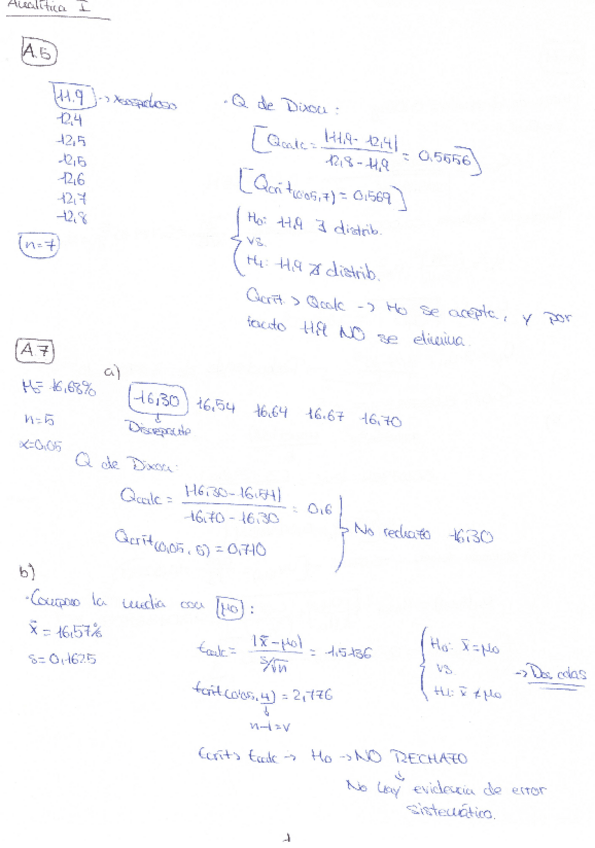 Analítica I
A.5
11.9 → sospechoso
12,4
12,5
12,5
12,6
12,7
12,8
n=7
· Q de Dixon:
[Qcalc = |11,9 - 12,4| / 12,8 - 11,9 = 0,5556]
[Qcrit(0.05,7) = 0,569]
H0: 11,9 ∃ distrib.
vs.
H1: 11,9 ∄ distrib.
Qcrit > Qcalc → H0 se acepta, y por
tanto 11,9 NO se elimina.
A.7
μ = 16,68%
n=5
α=0,05
a)
16,30 16,54 16,64 16.67 16,70
Discrepante
Q de Dixon:
Qcalc = |16,30 - 16,54| / 16,70 - 16,30 = 0,6
Qcrit(0,05, 5) = 0,710
No rechazo 16,30
b)
· Comparo la media con μ0:
x̄ = 16,57%
s = 0,1625
tcalc = |x̄ - μ0| / s/√n = 1.5136
tcrit(0'05, 4) = 2,776
n-1=ν
H0: x̄ = μ0
vs
H1: x̄ ≠ μ0
→ Dos colas
tcrit > tcalc → H0 → NO RECHAZO
No hay evidencia de error
sistemático.
1